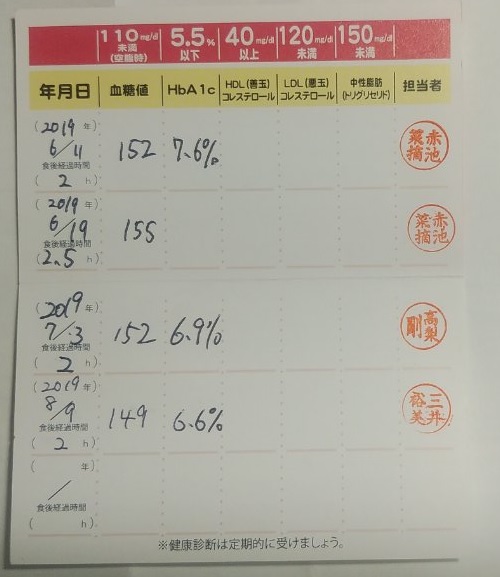 110 mg/dl 未満 (空腹時) 5.5% 以下 40 mg/dl 以上 120 mg/dl 未満 150 mg/dl 未満
年月日 血糖値 HbA1c HDL(善玉)コレステロール LDL(悪玉)コレステロール 中性脂肪(トリグリセリド) 担当者
(2019年)
6/11 152 7.6% 赤池菜摘
食後経過時間
(2h)
(2019年)
6/19 155 赤池菜摘
食後経過時間
(2.5h)
(2019年)
7/3 152 6.9% 高梨剛
食後経過時間
(2h)
(2019年)
8/9 149 6.6% 三井裕美
食後経過時間
(2h)
( 年)
/
食後経過時間
( h)
※健康診断は定期的に受けましょう。